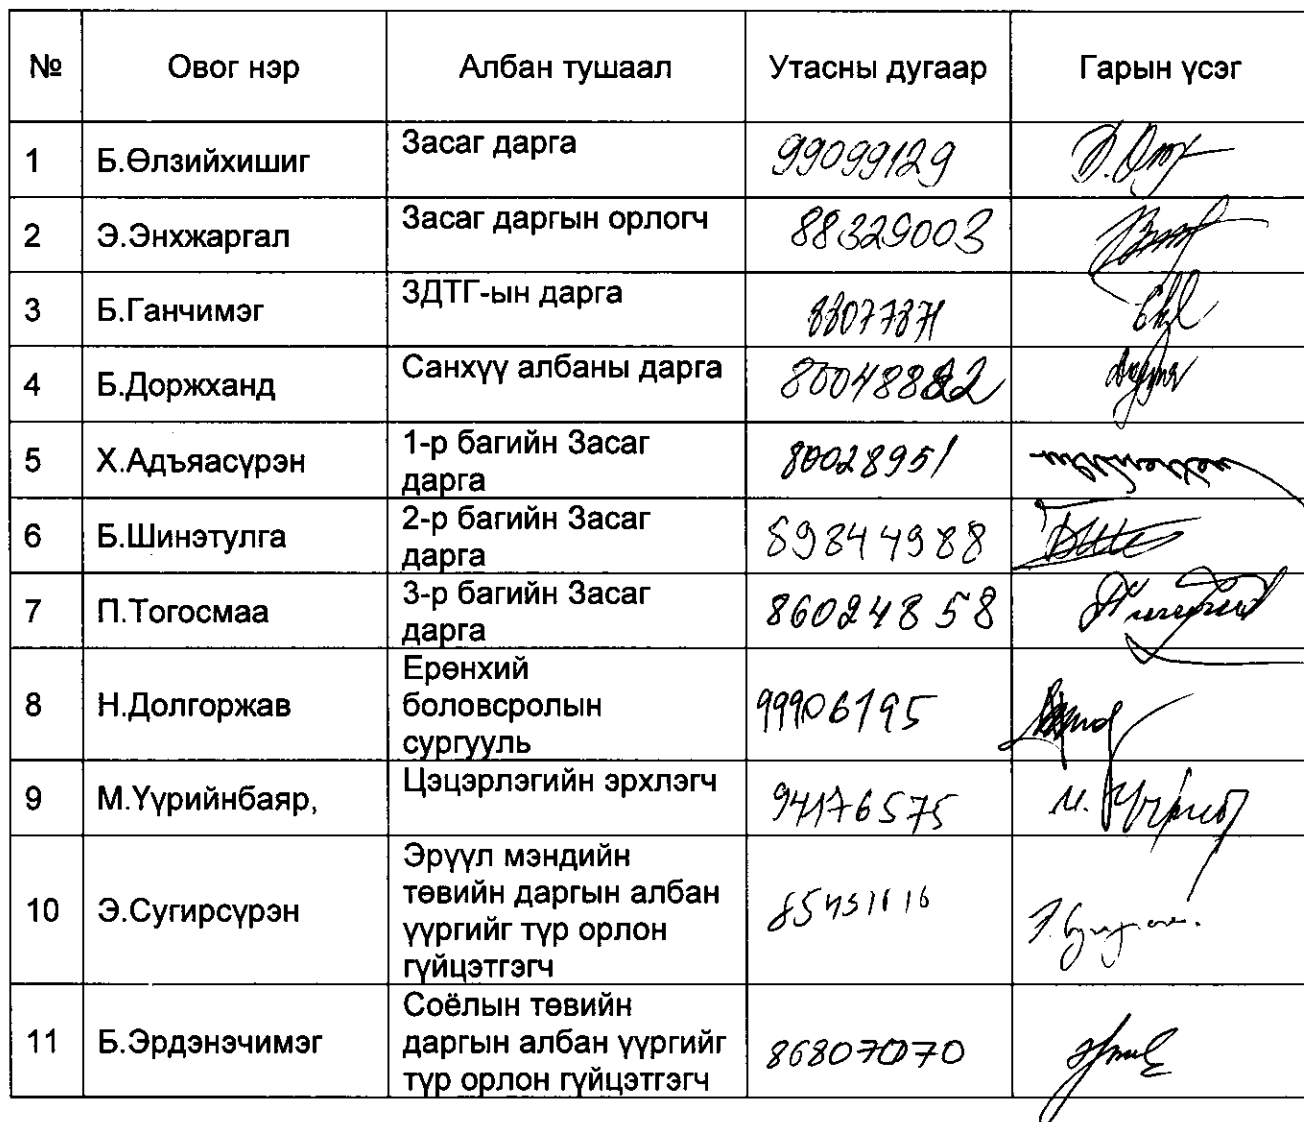 № Овог нэр Албан тушаал Утасны дугаар Гарын үсэг
1 Б.Өлзийхишиг Засаг дарга 99099129
2 Э.Энхжаргал Засаг даргын орлогч 88329003
3 Б.Ганчимэг ЗДТГ-ын дарга
4 Б.Доржханд Санхүү албаны дарга
5 Х.Адъяасүрэн 1-р багийн Засаг
дарга
80028951
6 Б.Шинэтулга 2-р багийн Засаг
дарга
7 П.Тогосмаа 3-р багийн Засаг
дарга
86024858
8 Н.Долгоржав Ерөнхий
боловсролын
сургууль
99906195
9 М.Үүрийнбаяр, Цэцэрлэгийн эрхлэгч 94176575
10 Э.Сугирсүрэн Эрүүл мэндийн
төвийн даргын албан
үүргийг түр орлон
гүйцэтгэгч
11 Б.Эрдэнэчимэг Соёлын төвийн
даргын албан үүргийг
түр орлон гүйцэтгэгч
86807070